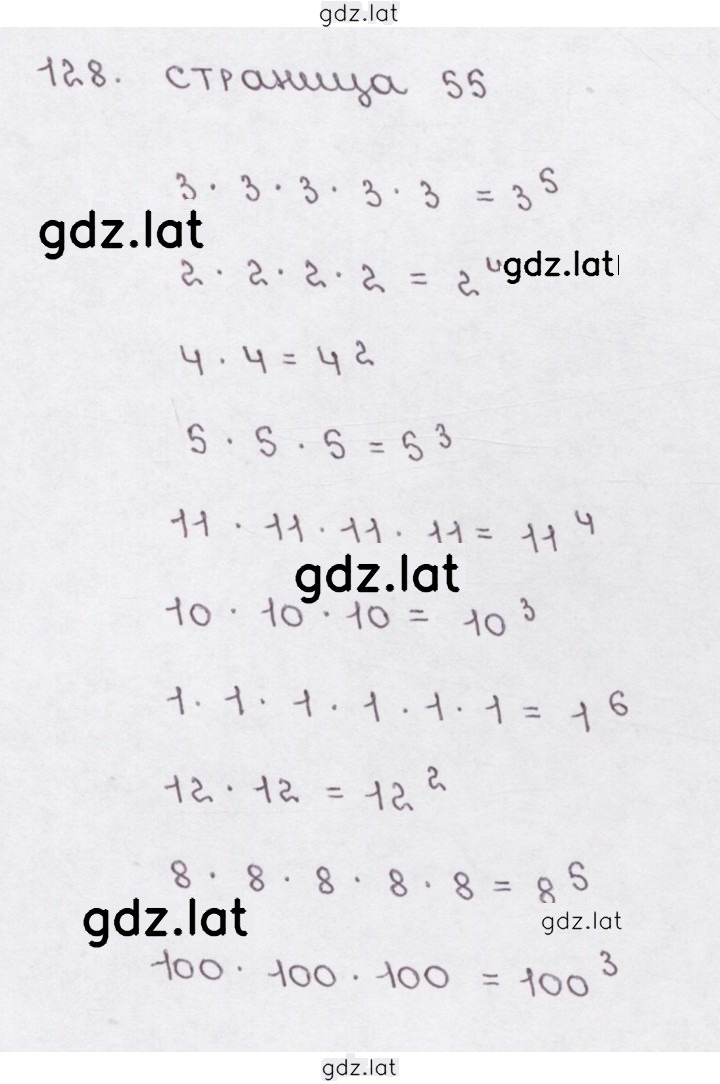 gdz.lat
128. страница 55
3 · 3 · 3 · 3 · 3 = 3⁵
gdz.lat
2 · 2 · 2 · 2 = 2⁴
gdz.lat
4 · 4 = 4²
5 · 5 · 5 = 5³
11 · 11 · 11 · 11 = 11⁴
gdz.lat
10 · 10 · 10 = 10³
1 · 1 · 1 · 1 · 1 · 1 = 1⁶
12 · 12 = 12²
8 · 8 · 8 · 8 · 8 = 8⁵
gdz.lat
gdz.lat
100 · 100 · 100 = 100³
gdz.lat